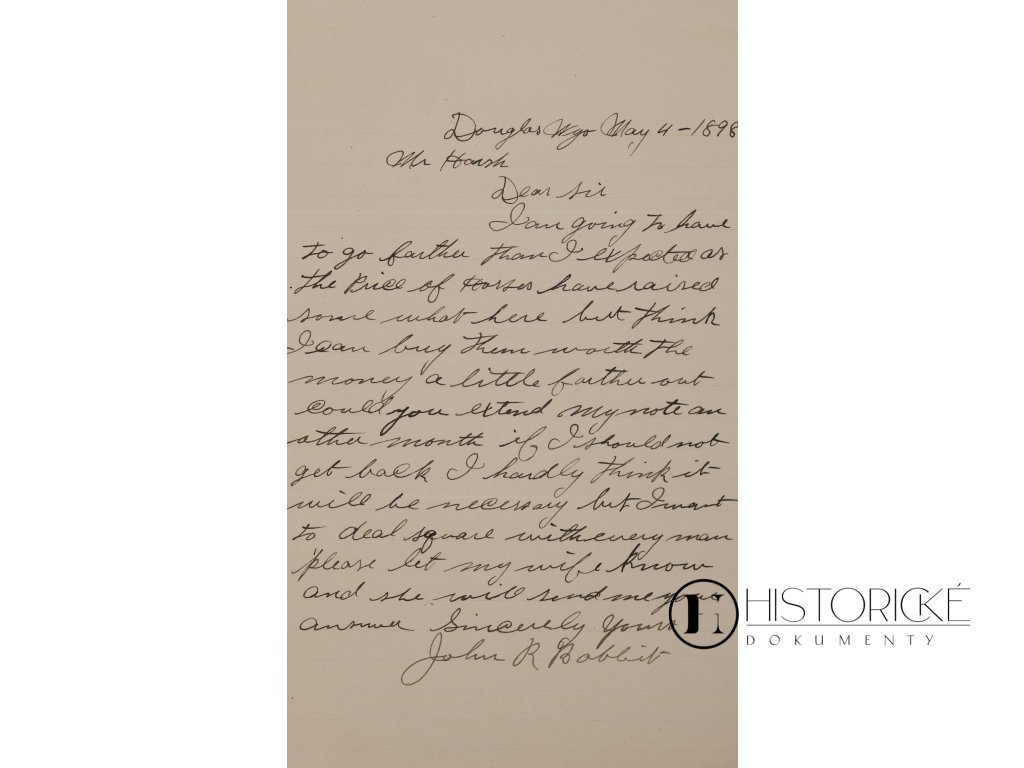 Douglas Wyo May 4-1898
Mr Harsh
Dear Sir
I am going to have
to go farther than I expected as
the Price of Horses have raised
some what here but think
I can buy them worth the
money a little farther out
could you extend my note an
other month if I should not
get back I hardly think it
will be necessary but I want
to deal square with every man
please let my wife know
and she will send me
answer Sincerely Yours
John R Babbit
HISTORICKÉ
DOKUMENTY